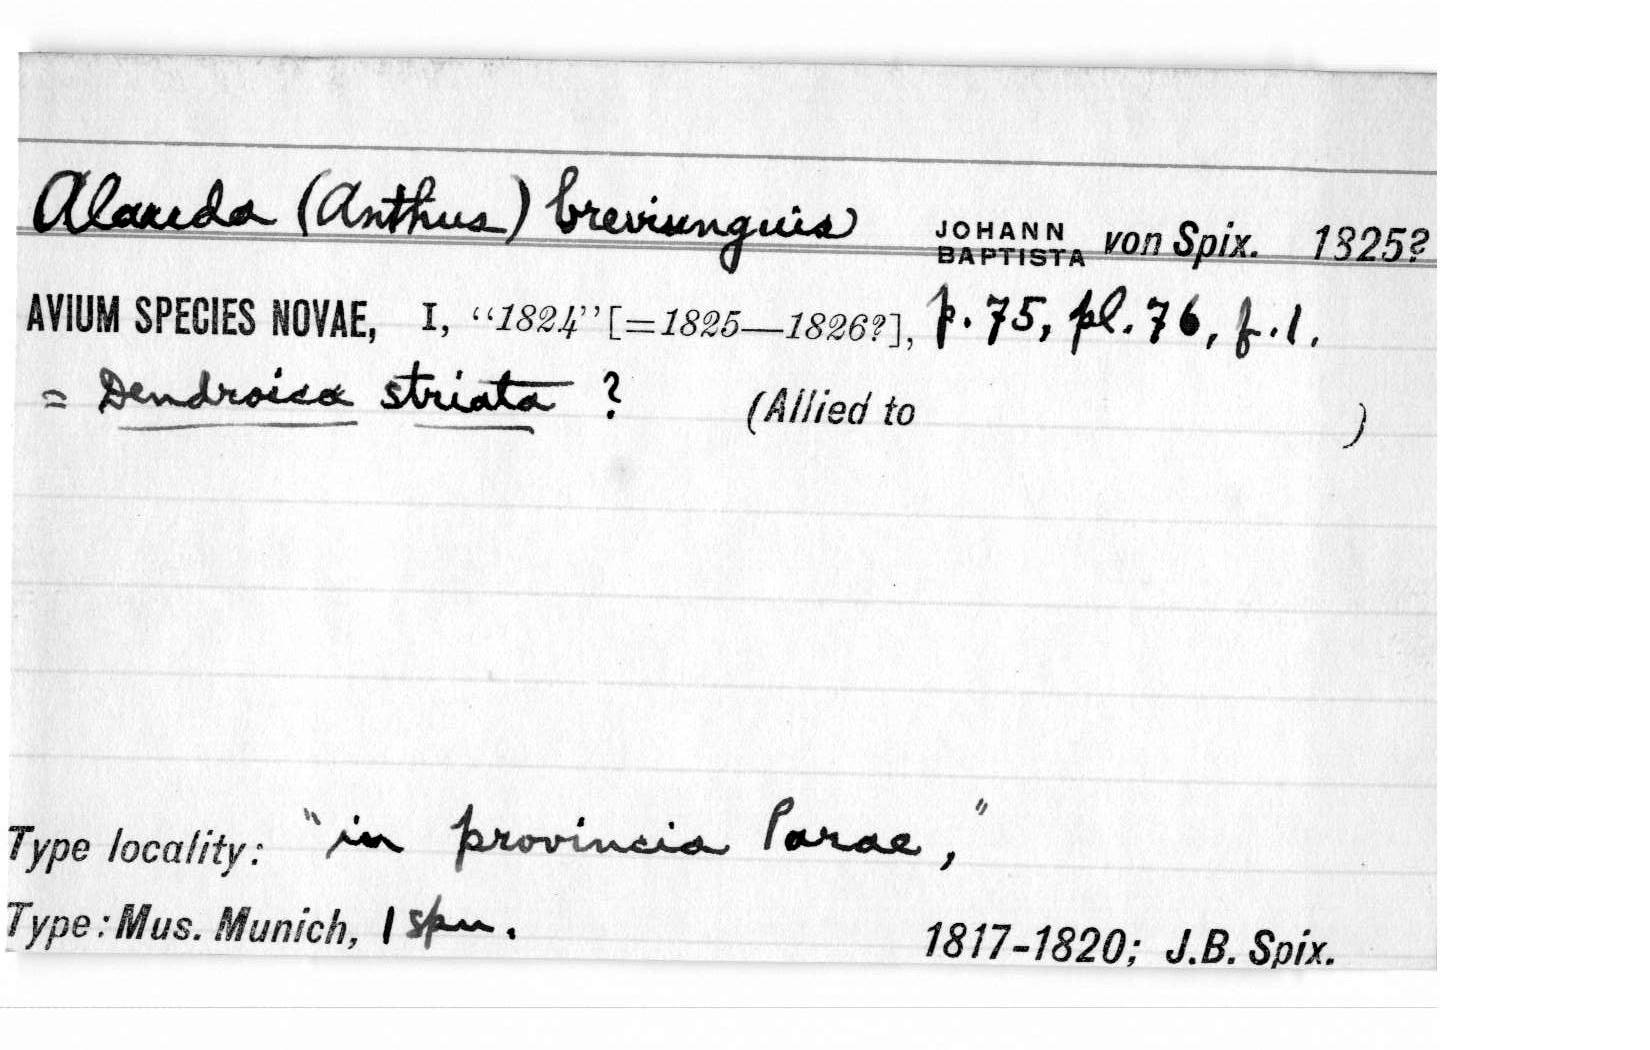 Alauda (Anthus) breviunguis JOHANN BAPTISTA von Spix. 1825?
AVIUM SPECIES NOVAE, I, “1824” [=1825—1826?], p. 75, pl. 76, f. 1.
= Dendroica striata ? (Allied to )
Type locality: "in provincia Parae,"
Type: Mus. Munich, 1 spm. 1817-1820; J.B. Spix.